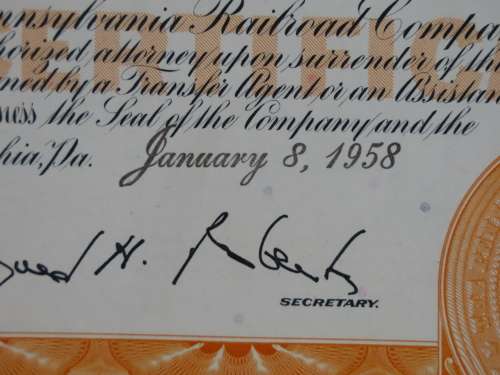 nnsylvania Railroad Compa
horized attorney upon surrender of thi
ned by a Transfer Agent or an Assistan
ness the Seal of the Company and the
hia, Pa. January 8, 1958
H.
SECRETARY.
CERTIFICA